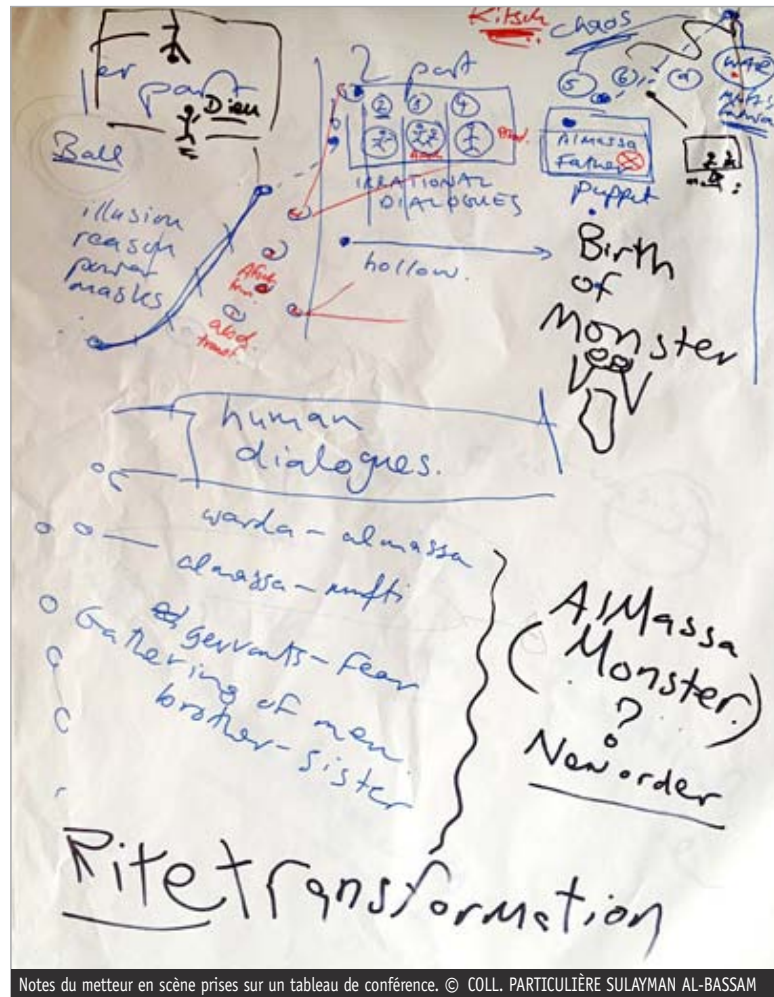 1er part
Dieu
Ball
illusion
reason
power
masks
2 part
2 3 4
IRRATIONAL
DIALOGUES
hollow.
Kitsch
chaos
5 6
WAR
Almassa
Father
puppet
Birth
of
Monster
human
dialogues.
warda - almassa
almassa - mufti
servants - Fear
Gathering of men
brother - sister
AlMassa
(Monster.)
?
New order
Rite transformation
Notes du metteur en scène prises sur un tableau de conférence. © COLL. PARTICULIÈRE SULAYMAN AL-BASSAM